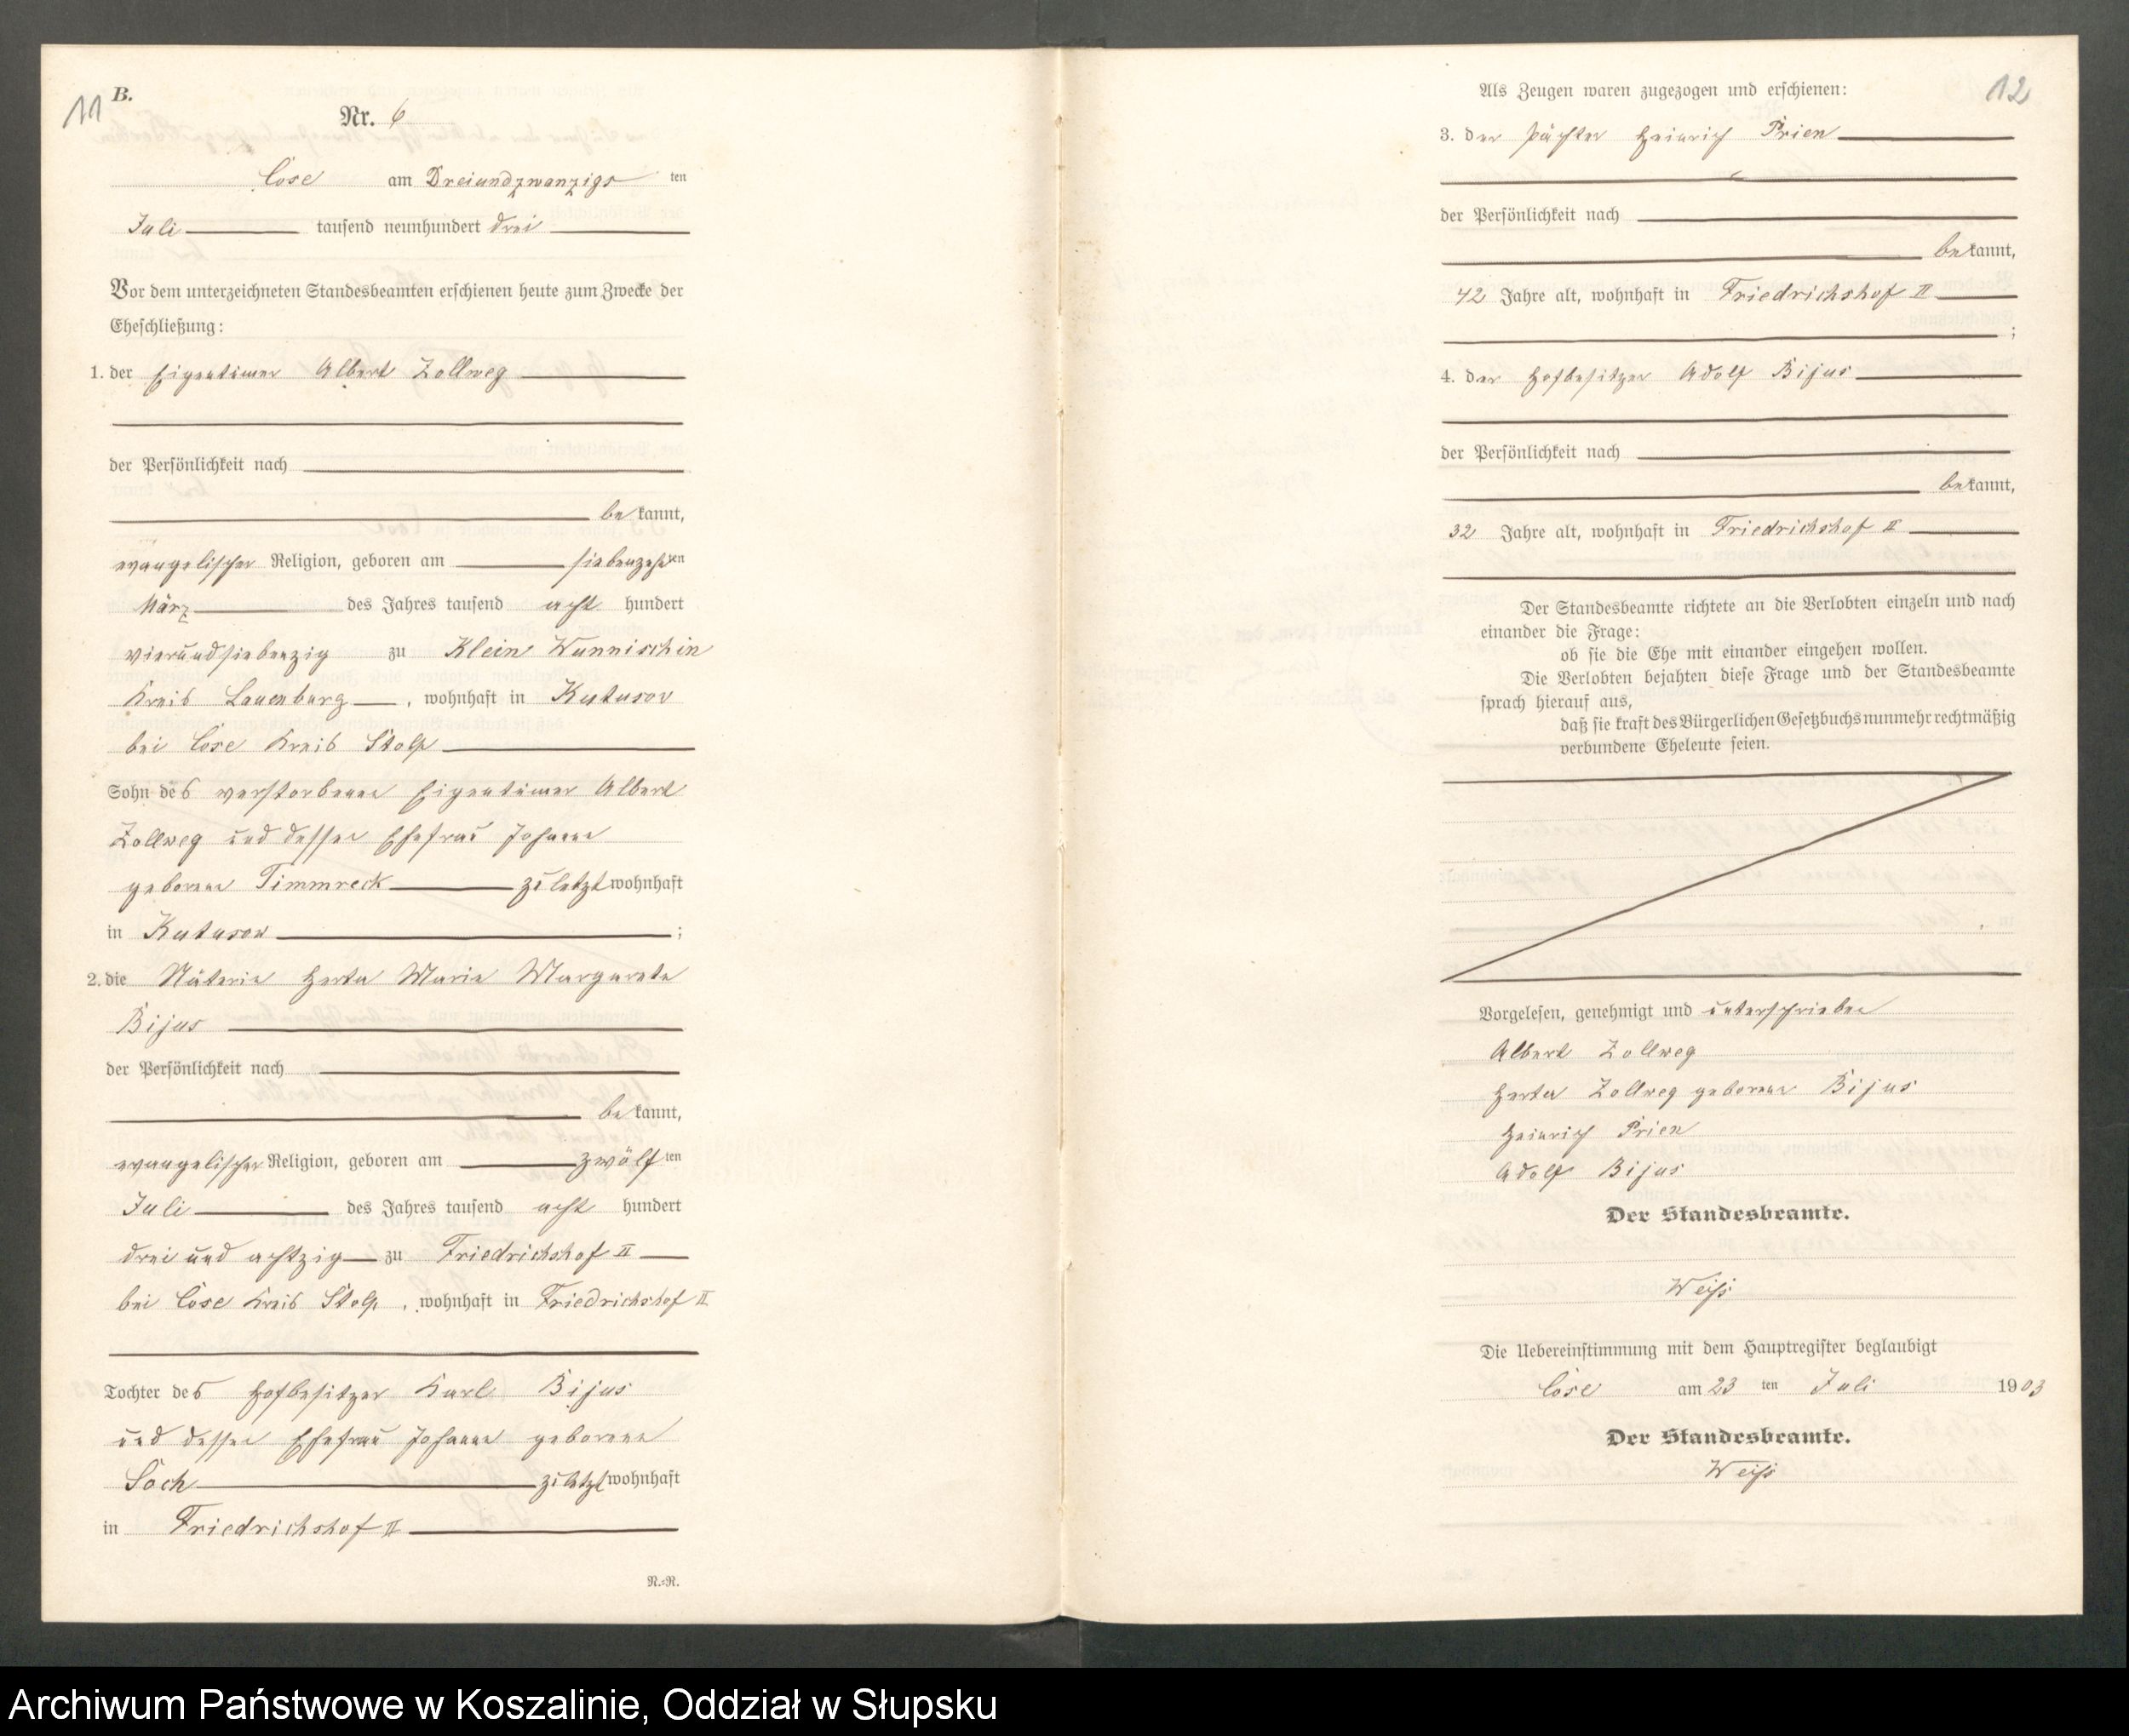 11
B.
Nr. 6
Cose am Dreiundzwanzigs ten
Juli tausend neunhundert drei
Vor dem unterzeichneten Standesbeamten erschienen heute zum Zwecke der
Eheschließung:
1. der Eigentümer Albert Zollweg
der Persönlichkeit nach
be kannt,
evangelischer Religion, geboren am siebenzehn ten
März des Jahres tausend acht hundert
vierundsiebenzig zu Klein Wunnischin
Kreis Lauenburg, wohnhaft in Kutusov
bei Cose Kreis Stolp
Sohn des verstorbenen Eigentümer Albert
Zollweg und dessen Ehefrau Johanne
geborene Timmreck zuletzt wohnhaft
in Kutusow ;
2. die Näterin Herta Marie Margarete
Bijus
der Persönlichkeit nach
be kannt,
evangelischer Religion, geboren am zwölf ten
Juli des Jahres tausend acht hundert
drei und achtzig zu Friedrichshof II
bei Cose Kreis Stolp, wohnhaft in Friedrichshof II
Tochter des Hofbesitzer Karl Bijus
und dessen Ehefrau Johanne geborene
Soch zuletzt wohnhaft
in Friedrichshof II
R.=R.
12
Als Zeugen waren zugezogen und erschienen:
3. der Pächter Heinrich Prien
der Persönlichkeit nach
be kannt,
42 Jahre alt, wohnhaft in Friedrichshof II
;
4. der Hofbesitzer Adolf Bijus
der Persönlichkeit nach
be kannt,
32 Jahre alt, wohnhaft in Friedrichshof II
Der Standesbeamte richtete an die Verlobten einzeln und nach
einander die Frage:
ob sie die Ehe mit einander eingehen wollen.
Die Verlobten bejahten diese Frage und der Standesbeamte
sprach hierauf aus,
daß sie kraft des Bürgerlichen Gesetzbuchs nunmehr rechtmäßig
verbundene Eheleute seien.
Vorgelesen, genehmigt und unterschrieben
Albert Zollweg
Herta Zollweg geborene Bijus
Heinrich Prien
Adolf Bijus
Der Standesbeamte.
Weiß
Die Uebereinstimmung mit dem Hauptregister beglaubigt
Cose am 23 ten Juli 1903
Der Standesbeamte.
Weiß
Archiwum Państwowe w Koszalinie, Oddział w Słupsku